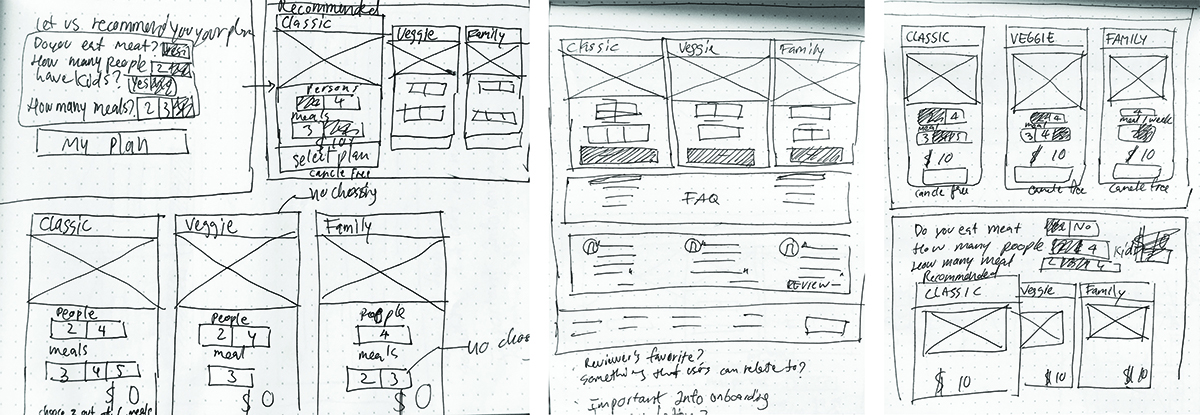 Let us recommend you your plan
Do you eat meat? Yes
How many people 2
have kids? Yes
How many meals? 2 3
My plan
Recommended
Classic
Persons
4
meals
3
$10
Select plan
cancle free
Veggie
Family
no choosing
Classic
People
2 4
meals
3 4 5
$ 0
choose 3 out of 6 meals
Veggie
People
2 4
meal
3
$ 0
Family
People
4
meals
2 3
$ 0
no
Classic Veggie Family
FAQ
REVIEW
Reviewer's favorite?
Something that users can relate to?
Important Info onboarding
CLASSIC VEGGIE FAMILY
4
meal
3
$ 10
cancle free
4
meal
3 4
$ 10
cancle free
4
meal/week
$ 10
cancle free
Do you eat meat No
How many people 4 kids
How many meat 2 4
Recommended
CLASSIC Veggie Family
$ 10 $ 10 $ 10